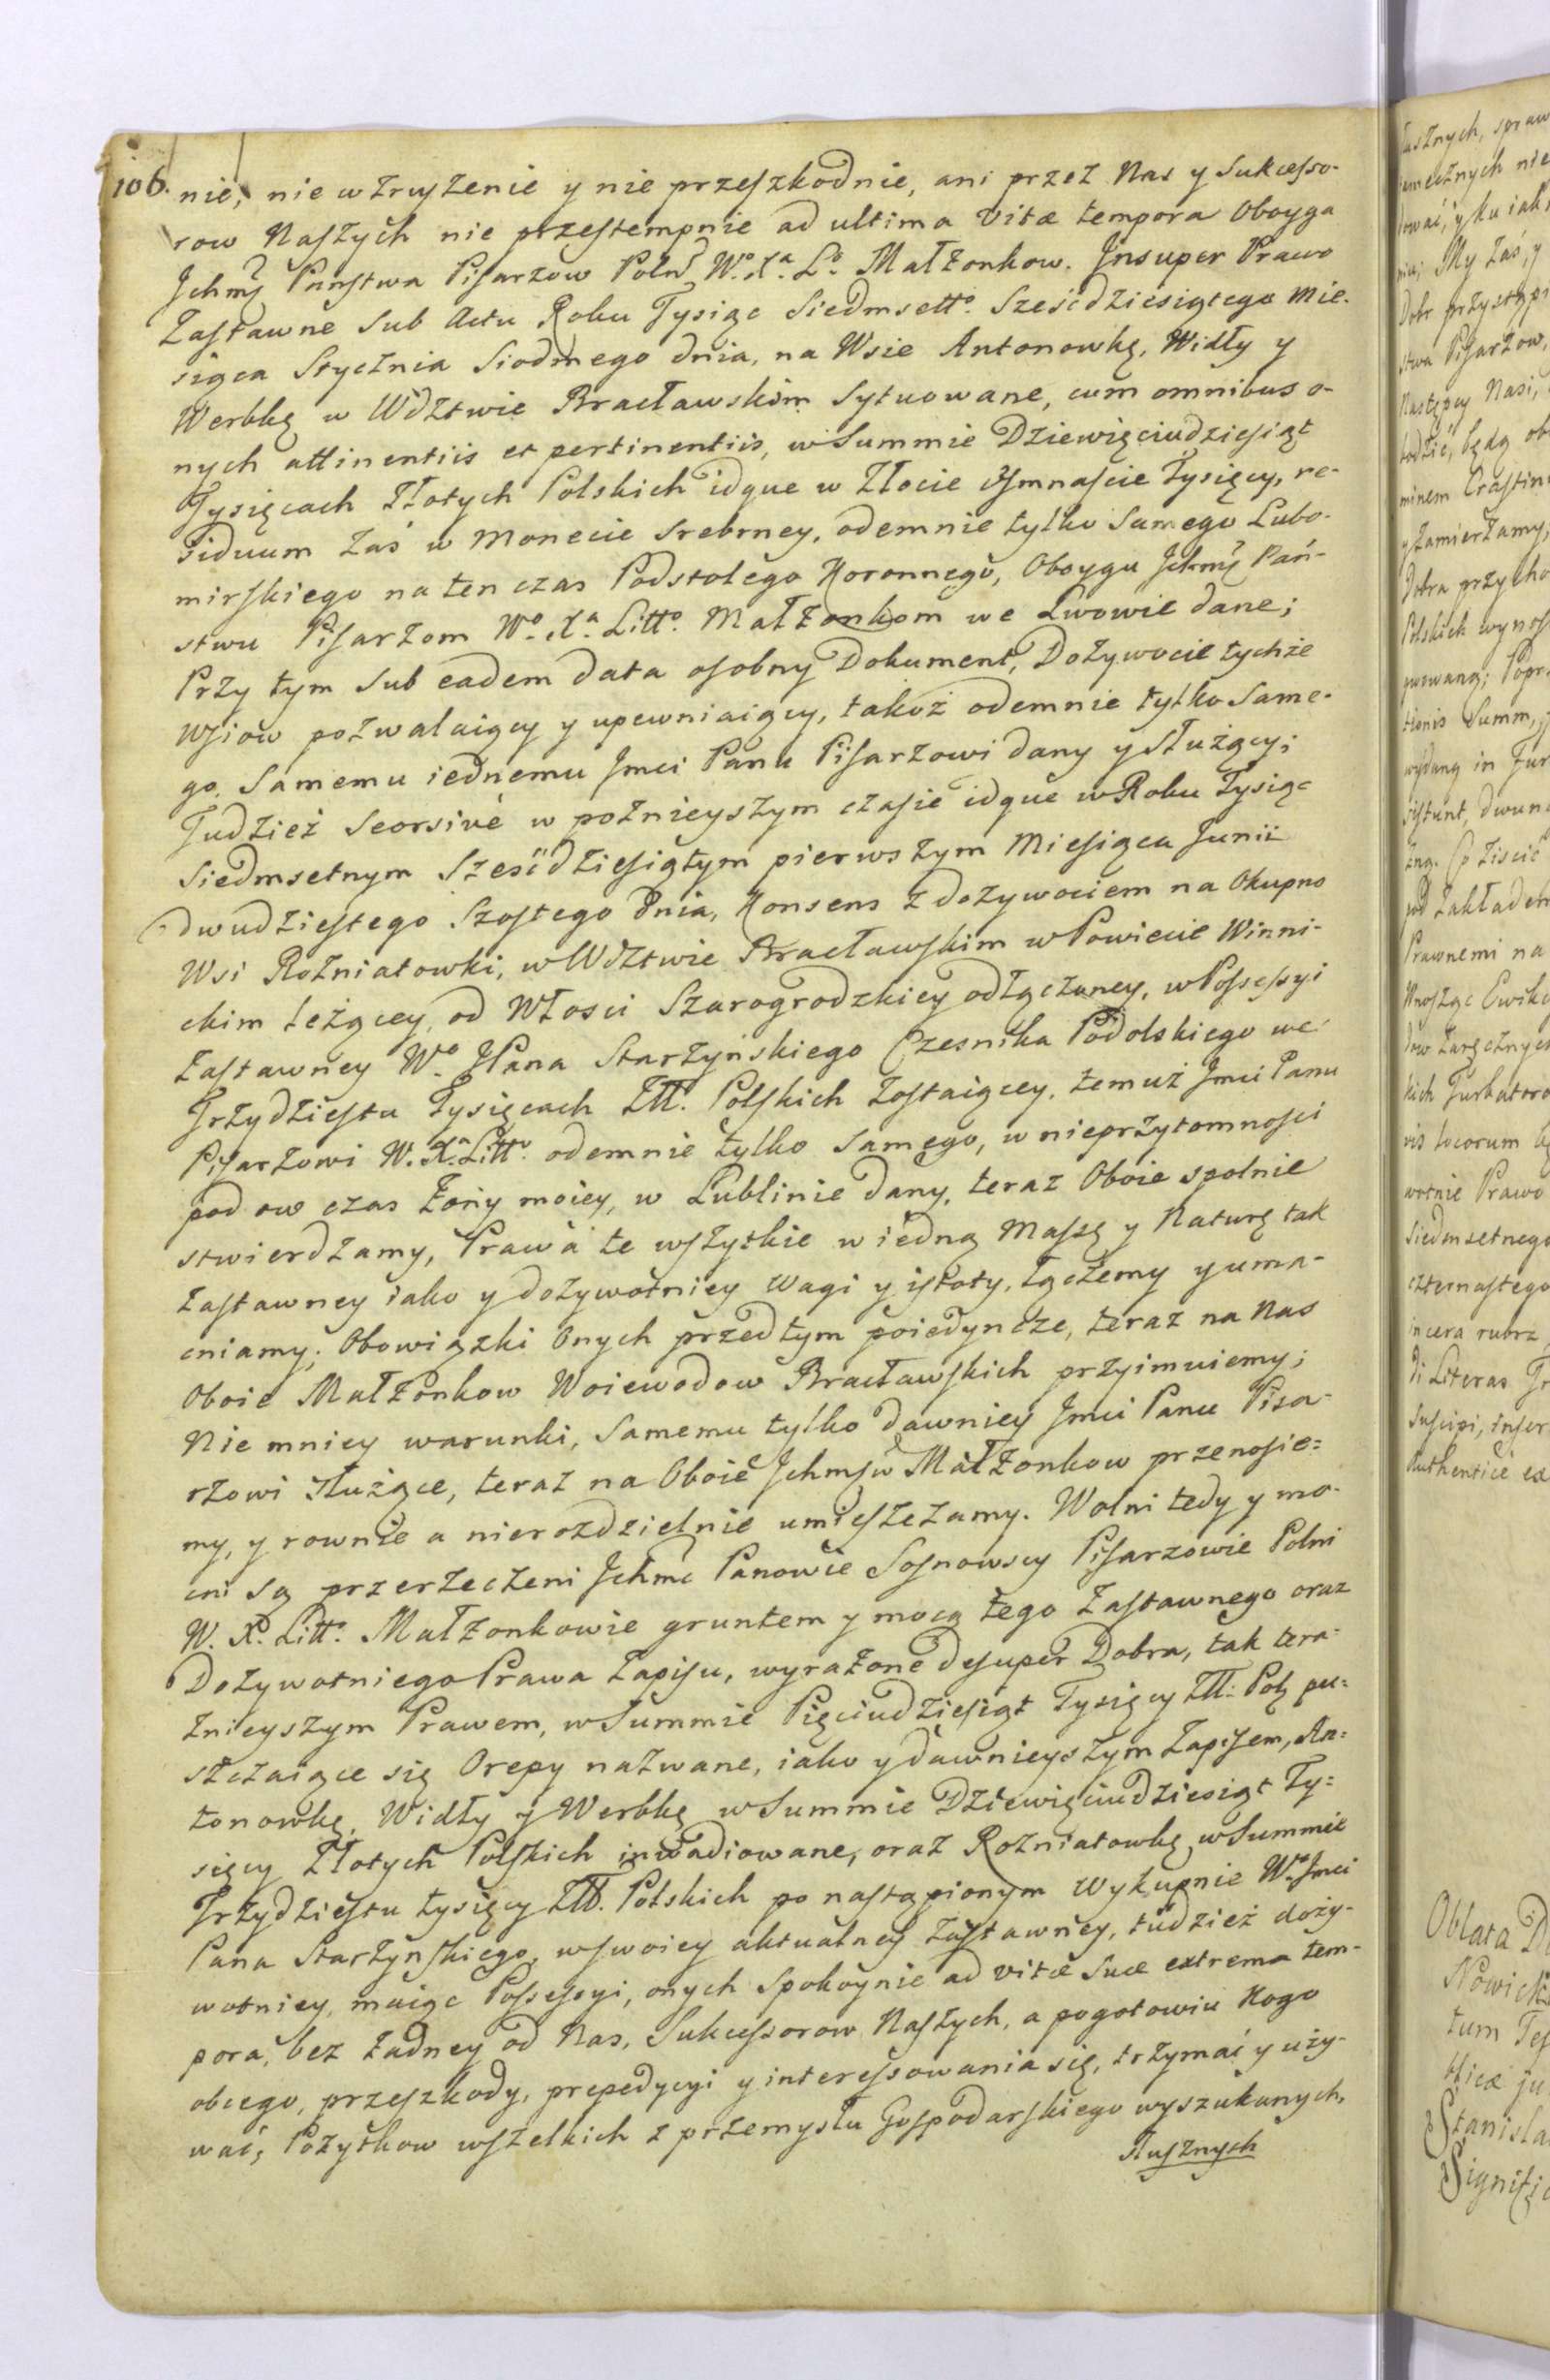 106. nie, nie wzruszenie y nie przeszkodnie, ani przez Nas y Sukcesso-
row Naszych nie przestempnie ad ultima vitæ tempora Oboyga
Jchmć Państwa Pisarzow Poln. W.o X.a L.o Małżonkow. Jnsuper Prawo
Zastawne sub Actu Roku Tysiąc Siedmsett.o Sześćdziesiątego Mie-
siąca Stycznia Siodmego dnia, na Wsie Antonowkę, Widły y
Werbkę w Wdztwie Bracławskim sytuowane, cum omnibus o-
nych attinentiis et pertinentiis, w Summie Dziewięciudziesiąt
Tysięcach Złotych Polskich idque w Złocie Osmnaście Tysięcy, re-
siduum zaś w Monecie Srebrney, odemnie tylko Samego Lubo-
mirskiego na ten czas Podstolego Koronnego, Oboygu Jchmć Pań-
stwu Pisarzom W.o X.a Litt.o Małżonkom we Lwowie dane;
Przy tym sub eadem data osobny Dokument, Dożywocie tychże
Wsiow pozwalaiący y upewniaiący, takoż odemnie tylko Same-
go, Samemu iednemu Jmci Panu Pisarzowi dany y służący;
Tudzież Seorsivè w poznieyszym czasie idque w Roku Tysiąc
Siedmsetnym Sześćdziesiątym pierwszym Miesiąca Junii
dwudziestego Szostego dnia, Konsens z dożywociem na Okupno
Wsi Rozniatowki, w Wdztwie Bracławskim w Powiecie Winni-
ckim leżącey, od Włosci Szarogrodzkiey odłączoney, w Possessyi
Zastawney W.o JPana Starzyńskiego Czesnika Podolskiego we
Trzydziestu Tysięcach Złł. Polskich zostaiącey, temuż Jmci Panu
Pisarzowi W. X.a Litt.o odemnie tylko Samego, w nieprzytomnosci
pod ow czas Żony moiey, w Lublinie dany, teraz Oboie spolnie
stwierdzamy, Prawa te wszytkie w iedną Massę y Naturę tak
Zastawney iako y dożywotniey wagi y istoty, łączemy y uma-
cniamy; Obowiązki Onych przedtym poiedyncze, teraz na Nas
Oboie Małżonkow Woiewodow Bracławskich przyimuiemy;
Nie mniey warunki, Samemu tylko dawniey Jmci Panu Pisa-
rzowi służące, teraz na Oboie Jchmsw Małżonkow przenosie=
my, y rownie a nierozdzielnie umieszczamy. Wolni tedy y mo-
cni są przerzeczeni Jchmć Panowie Sosnowscy Pisarzowie Polni
W. X. Litt.o Małżonkowie gruntem y mocą tego Zastawnego oraz
Dożywotniego Prawa Zapisu, wyrażone desuper Dobra, tak tera-
znieyszym Prawem, w Summie Pięciudziesiąt Tysięcy Złł: Pol. pu=
szczaiące się Orepy nazwane, iako y dawnieyszym Zapisem, An=
tonowkę, Widły y Werbkę w Summie Dziewięciudziesiąt Ty=
sięcy Złotych Polskich inwadiowane, oraz Rozniatowkę w Summie
Trzydziestu tysięcy Złł. Polskich po nastąpionym Wykupnie W.o Jmci
Pana Starzyńskiego, w swoiey aktualney Zastawney, tudzież doży-
wotniey, maiąc Possessyi, onych Spokoynie ad vitæ Suæ extrema tem-
pora, bez żadney od Nas, Sukcessorow Naszych, a pogotowiu Kogo
obcego, przeszkody, prepedycyi y interessowania się, trzymać y uży-
wać; Pożytkow wszelkich z przemysłu Gospodarskiego wyszukanych,
słusznych